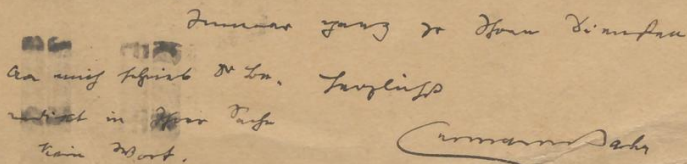 Immer ganz zu Ihren Diensten
An mich schrieb Dr Be. herzlichst
in Ihrer Sache
kein Wort. Hermann Bahr